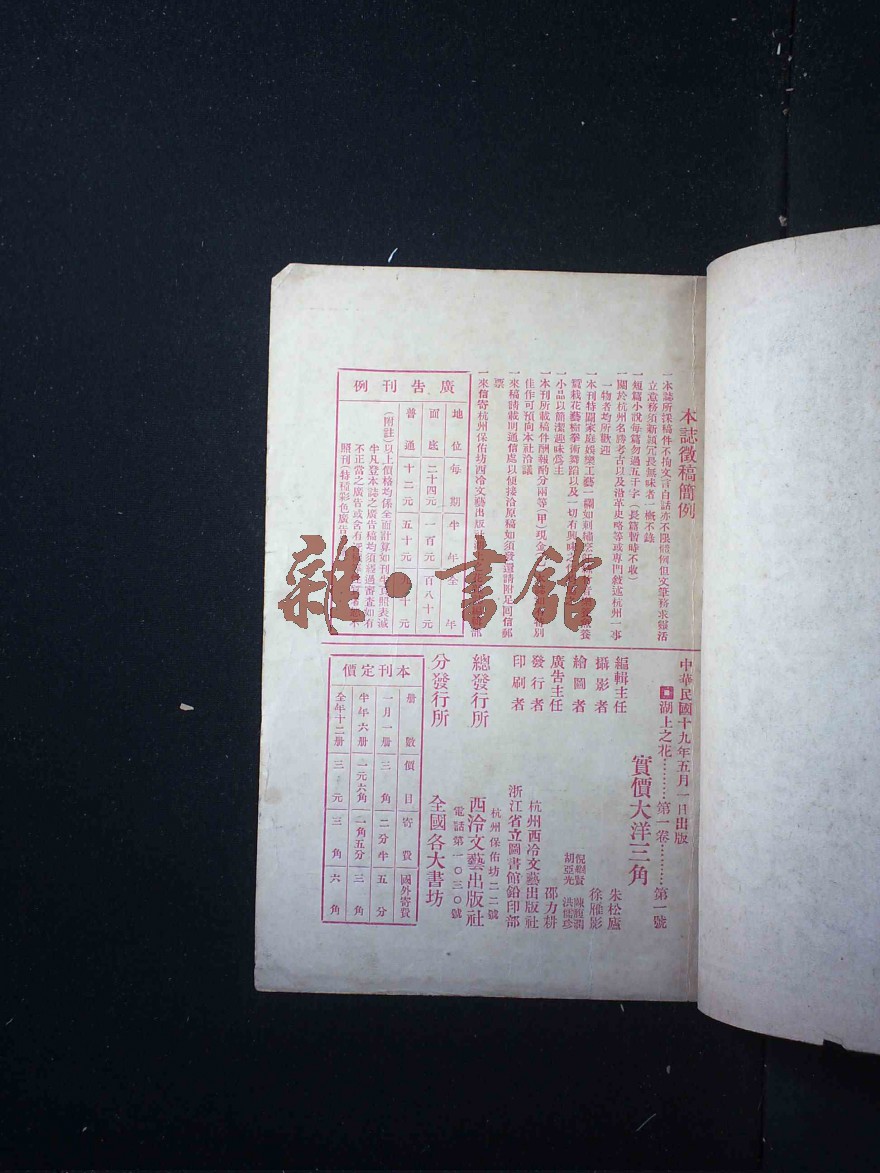 本誌徵稿簡例
一本誌所採稿件不拘文言白話亦不限體例但文筆務求靈活
立意務須新穎冗長無味者一概不錄
一短篇小說每篇勿過五千字（長篇暫時不收）
一關於杭州名勝考古以及沿革史略等或專門敘述杭州一事
一物者均所歡迎
一本刊特闢家庭娛樂工藝一欄如刺繡
養
鶯栽花藝樹拳術舞蹈以及一切有興味
一小品以簡潔趣味爲主
一本刊所載稿件酬報酌分兩等（甲）現金
特別
佳作可預向本社洽議
一來稿請載明通信處以便接洽原稿如須發還請附足回信郵
票
一來信寄杭州保佑坊西泠文藝出版社
部
廣告刊例
地位 每期 半年 全年
面底 二十四元 一百元 一百八十元
普通 十二元 五十元 十元
（附註）以上價格均係全面計算如刊半頁照表減
半凡登本誌之廣告稿均須經過審查如有
不正當之廣告或含有
不
照刊（特種彩色廣告
中華民國十九年五月一日出版
湖上之花…第一卷…第一號
實價大洋三角
編輯主任 朱松廬
攝影者 徐雁影
繪圖者 倪 賢 胡亞光 陳 洪儒珍
廣告主任 邵力耕
發行者 杭州西泠文藝出版社
印刷者 浙江省立圖書館鉛印部
總發行所 杭州保佑坊二二號 西泠文藝出版社
電話第一〇三〇號
分發行所 全國各大書坊
本刊定價
册數 價目 寄費 國外寄費
一月一册 三角 二分半 五分
半年六册 一元六角 一角五分 三角
全年十二册 三元 三角 六角
雜·書館